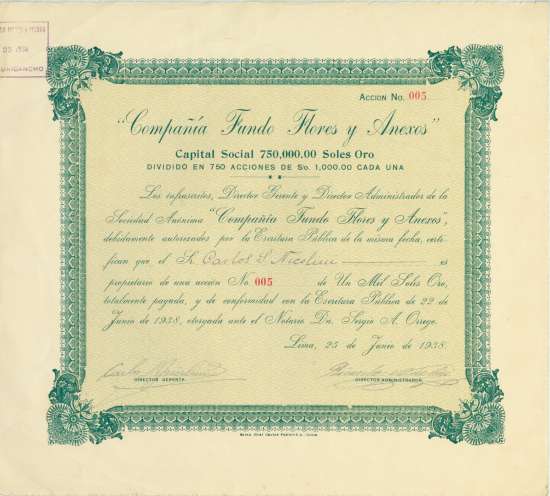 DS 1938
ACCION No. 005
"Compañía Fundo Flores y Anexos"
Capital Social 750,000.00 Soles Oro
DIVIDIDO EN 750 ACCIONES DE So. 1,000.00 CADA UNA
Los infrascritos, Director Gerente y Director Administrador de la
Sociedad Anónima "Compañía Fundo Flores y Anexos",
debidamente autorizados por la Escritura Pública de la misma fecha, certi-
fican que el Sr. Carlos S. Nicolini es
propietario de una acción No. 005 de Un Mil Soles Oro,
totalmente pagada, y de conformidad con la Escritura Pública de 22 de
Junio de 1938, otorgada ante el Notario Dn. Sergio A. Orrego.
Lima, 25 de Junio de 1938.
DIRECTOR GERENTE DIRECTOR ADMINISTRADOR